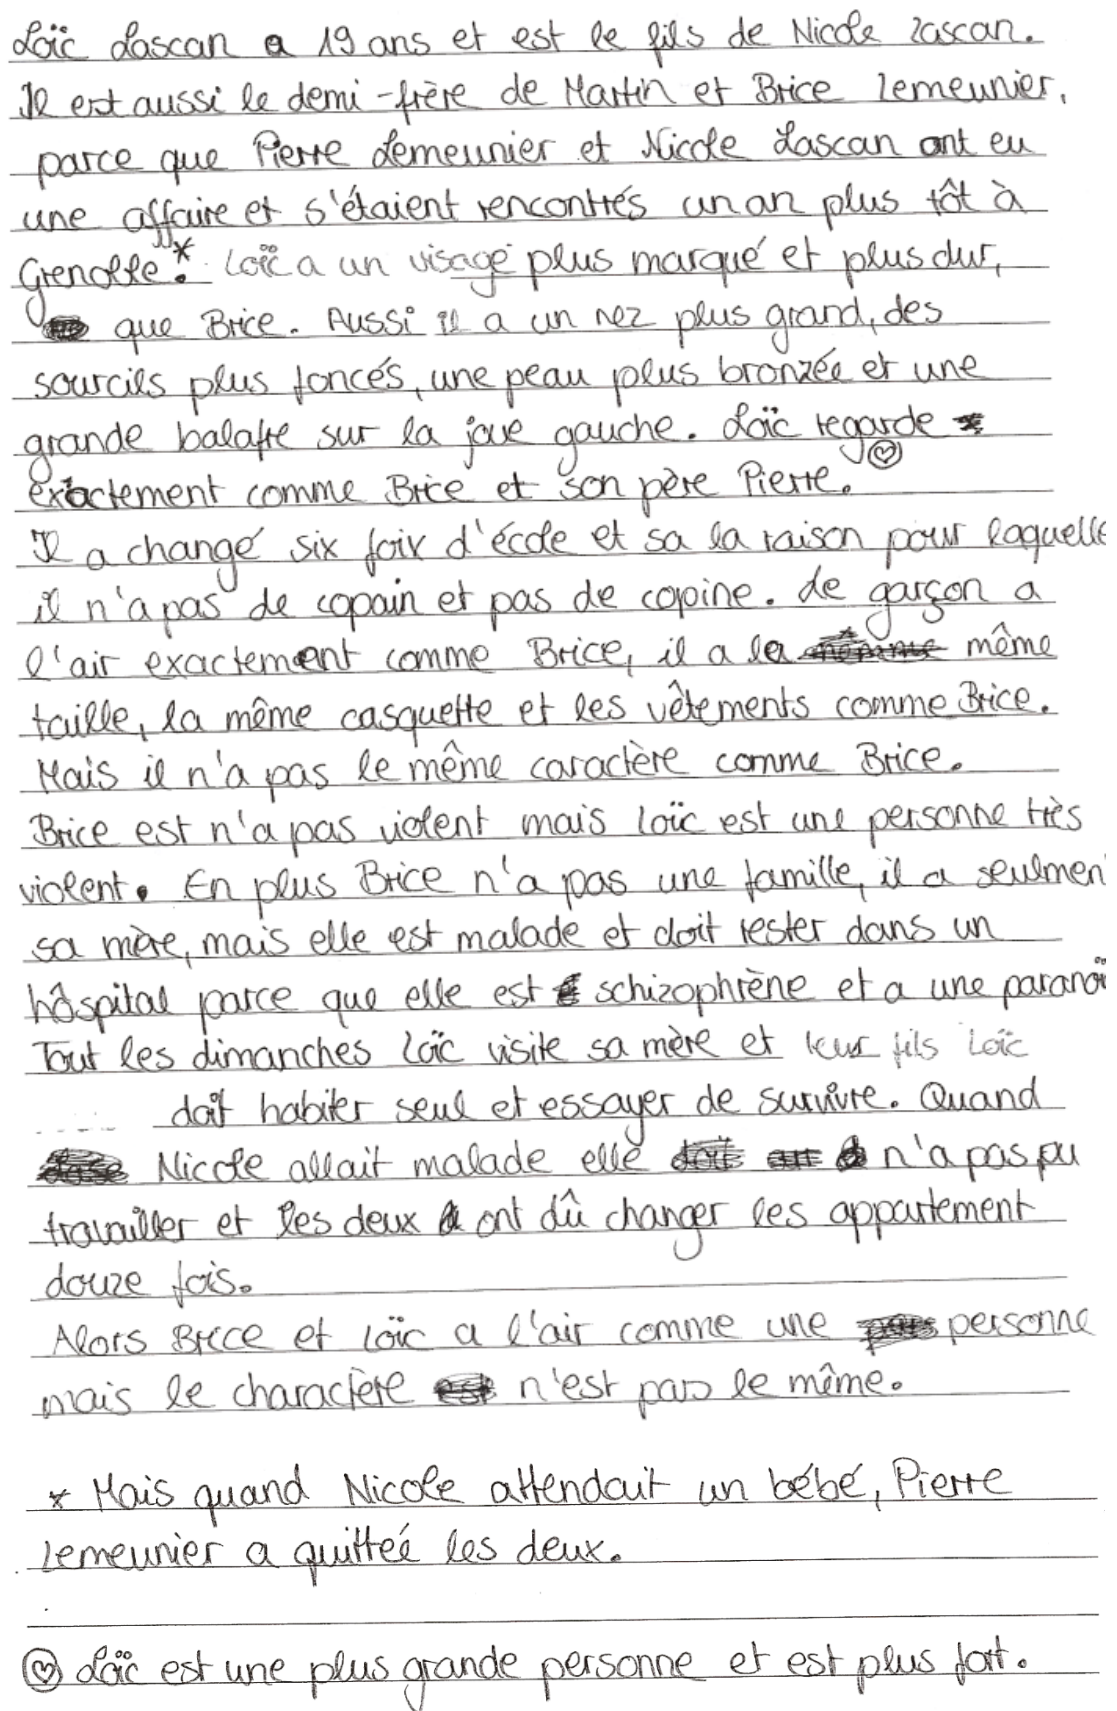 Loïc Lascan a 19 ans et est le fils de Nicole Lascan.
Il est aussi le demi-frère de Martin et Brice Lemeunier,
parce que Pierre Lemeunier et Nicole Lascan ont eu
une affaire et s'étaient rencontrés un an plus tôt à
Grenolle.* Loïc a un visage plus marqué et plus dur,
que Brice. Aussi il a un nez plus grand, des
sourcils plus foncés, une peau plus bronzée et une
grande balafre sur la joue gauche. Loïc regarde
exactement comme Brice et son père Pierre.
Il a changé six foix d'école et sa la raison pour laquelle
il n'a pas de copain et pas de copine. Le garçon a
l'air exactement comme Brice, il a la même
taille, la même casquette et les vêtements comme Brice.
Mais il n'a pas le même caractère comme Brice.
Brice est n'a pas violent mais Loïc est une personne très
violent. En plus Brice n'a pas une famille, il a seulmen
sa mère, mais elle est malade et doit rester dans un
hôspital parce que elle est schizophrène et a une paranoï
Tout les dimanches Loïc visite sa mère et leur fils Loïc
doit habiter seul et essayer de survivre. Quand
Nicole allait malade elle n'a pas pu
travailler et les deux ont dû changer les appartement
douze fois.
Alors Brice et Loïc a l'air comme une personne
mais le charactère n'est pas le même.
* Mais quand Nicole attendait un bébé, Pierre
Lemeunier a quitteé les deux.
Loïc est une plus grande personne et est plus fort.